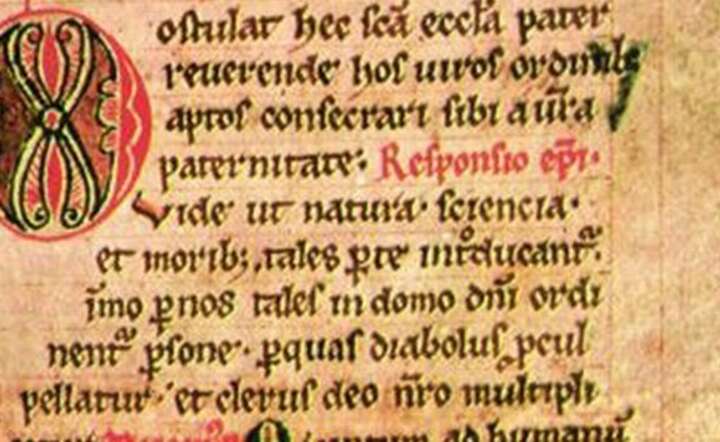 oſtulat hec ſcā eccl̄a pater
reuerende hoſ uiroſ ordinib;
aptoſ conſecrari ſibi a ūr̄a
paternitate. Reſponſio ep̄i.
Vide ut natura. ſciencia.
et morib;. tales ꝑ te intͦducantᷣ.
īmo ꝑ nos taleſ in domo dn̄i ordi
nentᷣ ꝑſone. ꝑ quaſ diaboluſ ꝓcul
pellatur. et cleruſ deo nr̄o multipli
ad humanū